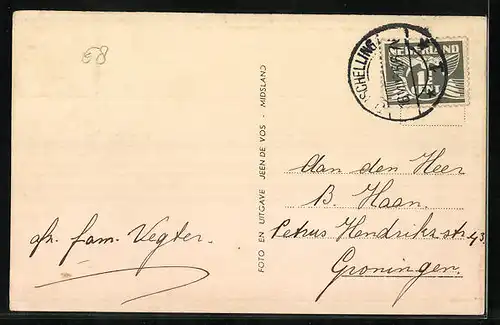 58
SCHELLING
NEDERLAND
FOTO EN UITGAVE JEEN DE VOS - MIDSLAND
Aan den Heer
B. Haan.
Petrus Hendrikszstr 43
Groningen.
afz. fam. Vegter.